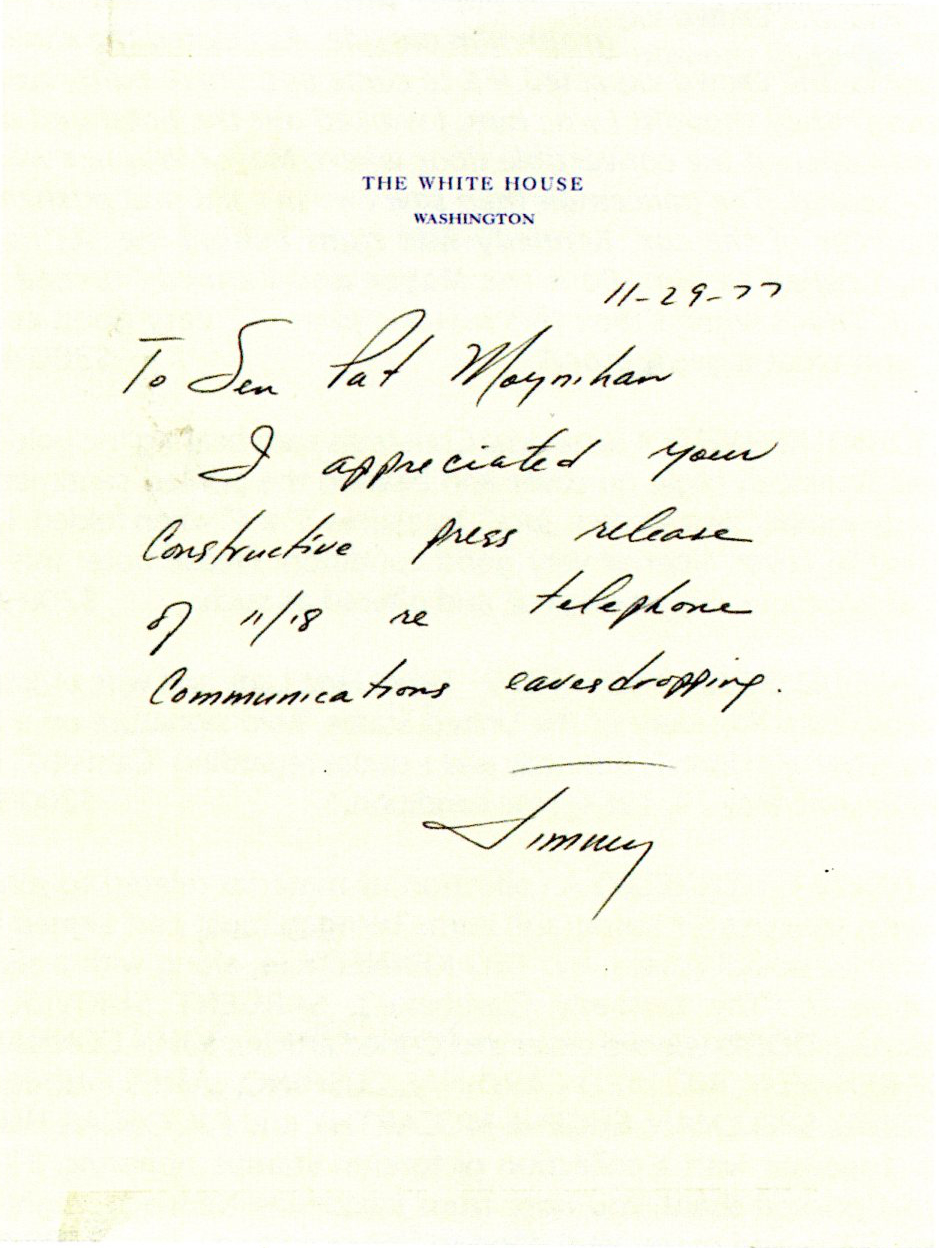 THE WHITE HOUSE
WASHINGTON
11-29-77
To Sen Pat Moynihan
I appreciated your
Constructive press release
of 11/18 re telephone
Communications eavesdropping.
Jimmy